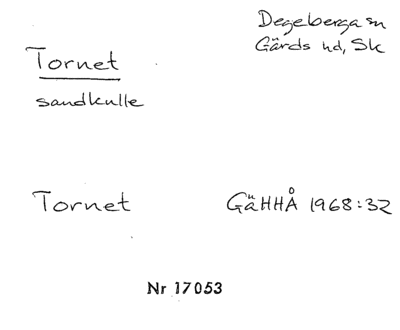 Degeberga sn
Gärds hd, Sk
Tornet
sandkulle
Tornet GäHHÅ 1968:32
Nr 17053